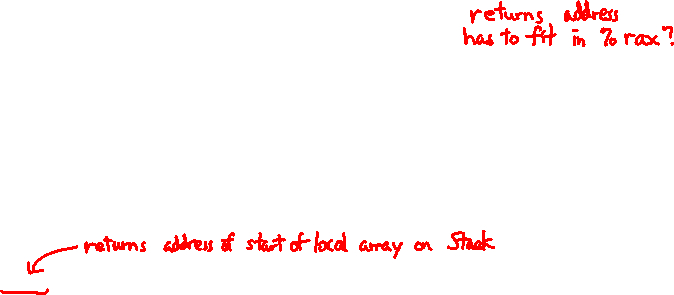 returns address
has to fit in %rax?
returns address of start of local array on Stack